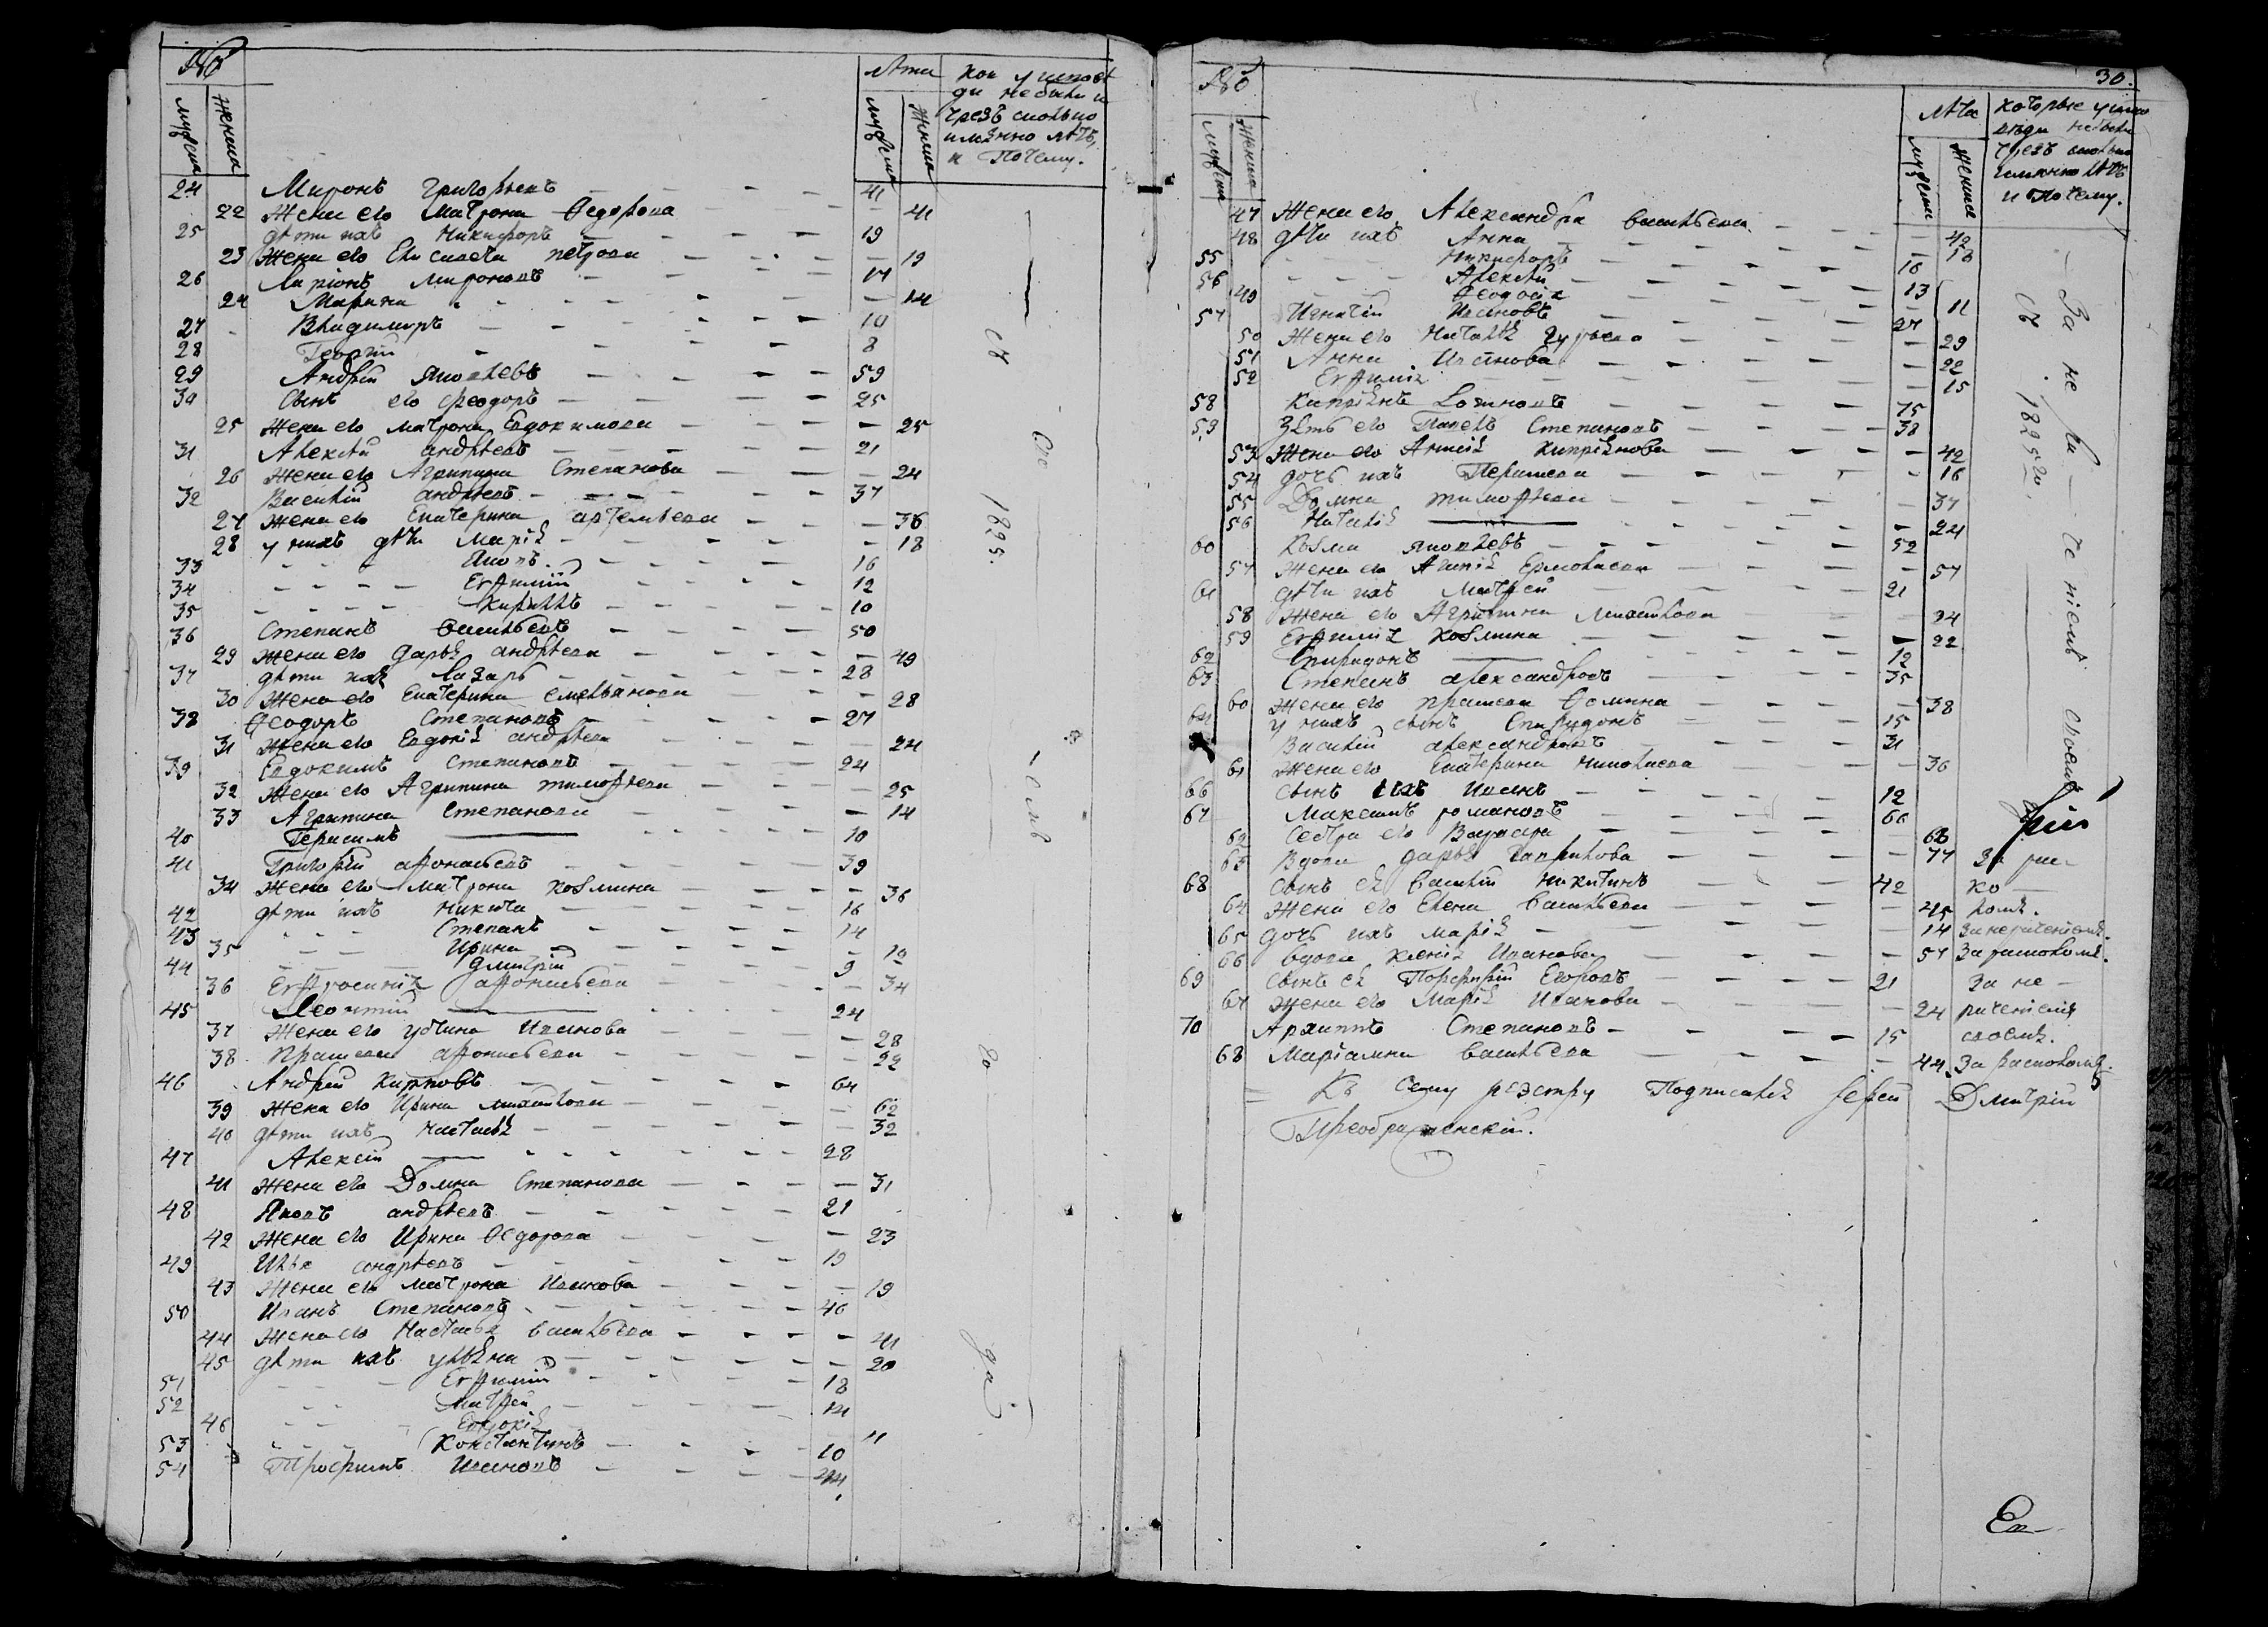 №
мужеска
женска
Лета
мужеска
женска
кои у испове
ди небыли и
чрезъ сколько
имянно летъ,
и Почему.
24 Миронъ Григорьевъ 41
22 Жена его Матрона Ѳедорова 41
25 дѣти ихъ Никифоръ 19
23 Жена его Елисавета петрова 19
26 Ларіонъ мироновъ 17
24 Марина 14
27 Владимиръ 10
28 Георгій 8
29 Андрей яковлевъ 59
30 Сынъ его Феодоръ 25
25 Жена его матрона Евдокимова 25
31 Алексѣй андрѣевъ 21
26 Жена его Агрипина Степанова 24
32 Василій андрѣевъ 37
27 жена его Екатерина артемьева 36
28 у нихъ дѣти Марія 18
33 Яковъ 16
34 Евфимій 12
35 Кириллъ 10
36 Степанъ васильевъ 50
29 жена его дарья андрѣева 49
37 дѣти ихъ Лазарь 28
30 Жена его Екатерина емельянова 28
38 Ѳеодоръ Степановъ 27
31 Жена его Евдокія андрѣева 24
39 Евдокимъ Степановъ 24
32 Жена его Агрипина тимофѣева 25
33 Агрипина Степанова 14
40 Герасимъ 10
41 Григорій афонасьевъ 39
34 Жена его матрона козмина 36
42 дѣти ихъ никита 16
43 Степанъ 14
35 Ирина 12
44 Дмитрій 9
36 Евфросинія афонасьева 34
45 Леонтій 24
37 Жена его устина Иванова 28
38 Прасковья афонасьева 22
46 Андрей Карповъ 64
39 Жена его Ирина михайлова 62
40 дѣти ихъ Настасья 32
47 Алексѣй 28
41 Жена его Домна Степанова 31
48 Яковъ андрѣевъ 21
42 Жена его Ирина Ѳедорова 23
49 Илья андрѣевъ 19
43 Жена его матрона Иванова 19
50 Иванъ Степановъ 46
44 Жена его Настасья васильева 41
45 дѣти ихъ ульяна 20
51 Евфимій 18
52 Матфей 14
46 Евдокія 11
53 Константинъ 10
54 Трофимъ Ивановъ 44
съ 1825. го
30.
№
мужеска
женска
Лета
мужеска
женска
которые у испо
вѣди небыли
чрезъ сколько
имянно летъ
и Почему.
47 Жена его Александра васильева 42
48 дѣти ихъ Анна 18
55 Никифоръ 16
56 Алексѣй 13
49 Ѳеодосія 11
57 Игнатій Ивановъ 27
50 Жена его Наталья Гурьева 29
51 Анна Иванова 22
52 Евфимія 15
58 Кипріянъ Логиновъ 75
59 Зять его Павелъ Степановъ 38
53 Жена его Анисія Кипріянова 42
54 дочь ихъ Парасковья 16
55 Домна тимофѣева 37
56 Наталія 24
60 Козма яковлевъ 52
57 Жена его Агапія Ермолаева 57
61 дѣти ихъ Матфей 21
58 Жена его Агрипина михайлова 24
59 Евфимія козмина 22
62 Спиридонъ 12
63 Степанъ александровъ 35
60 Жена его прасковья Ѳомина 38
64 у нихъ сынъ Спиридонъ 15
Василій александровъ 31
61 Жена его Екатерина Николаева 36
66 сынъ ихъ Иванъ 12
67 Максимъ романовъ 66
62 Сестра его Варвара 68
63 Вдова дарья Гаврилова 77 За рас-
68 сынъ ея василій никитинъ 42 ко-
64 Жена его Елена васильева 45 ломъ.
65 дочь ихъ марія 14 За нераченіемъ.
66 вдова ксенія Иванова 57 За расколомъ.
69 сынъ ея Порфирій Егоровъ 21 За не-
67 Жена его Марія Иванова 24 раченіемъ
70 Архиппъ Степановъ 15 своемъ.
68 Маріамна васильева 44 За расколомъ.
За не ра- че ніемъ своемъ
съ 1825 го.
Къ Сему реэстру Подписался Іерей Дмитрій
Преображенскій.